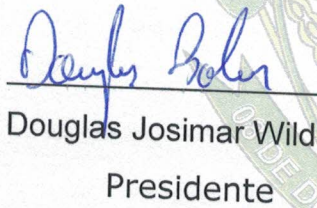 Douglas Josimar Wild
Presidente